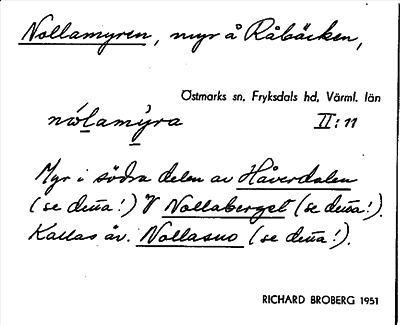 Nollamyren, myr å Råbäcken,
Östmarks sn, Fryksdals hd, Värml. län
nólamỳra II:11
Myr i södra delen av Håverdalen
(se detta!) V Nollaberget (se detta!).
Kallas äv. Nollasuo (se detta!).
RICHARD BROBERG 1951